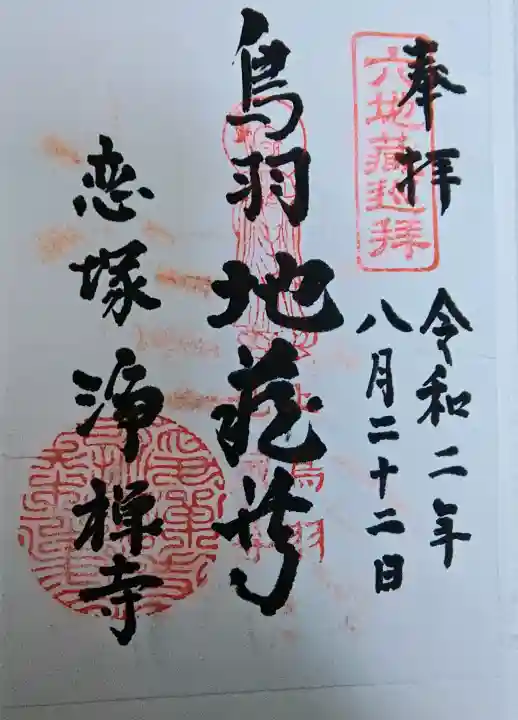 奉拝
六地藏巡拝
令和二年
八月二十二日
鳥羽地蔵尊
恋塚浄禅寺